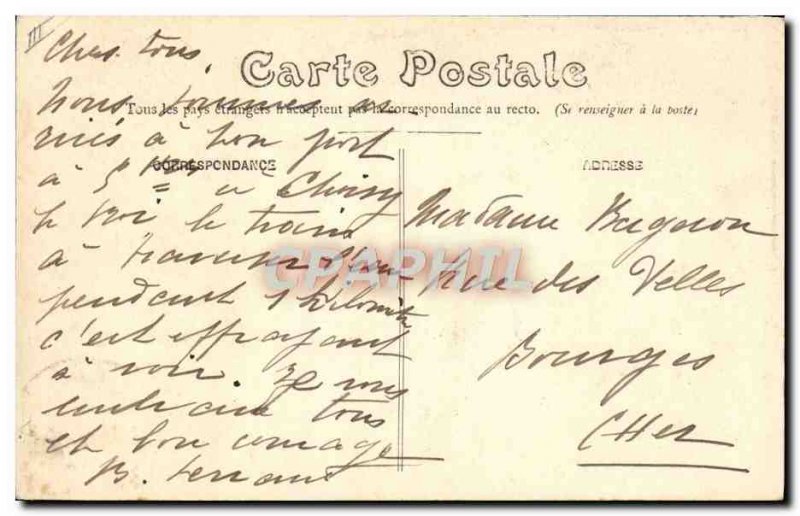 III
Chers tous,
Carte Postale
Tous les pays étrangers n'acceptent pas la correspondance au recto. (Se renseigner à la poste)
Nous sommes ar
rivés à bon port
CORRESPONDANCE
ADRESSE
à 5 a Choisy
le Roi le train
à traverser l'eau
pendant 1 kilomètre
c'est effrayant
à voir. Je vous
embrasse tous
et bon courage
B.
Madame
Rue des
Bourges
CHer
CPAPHIL